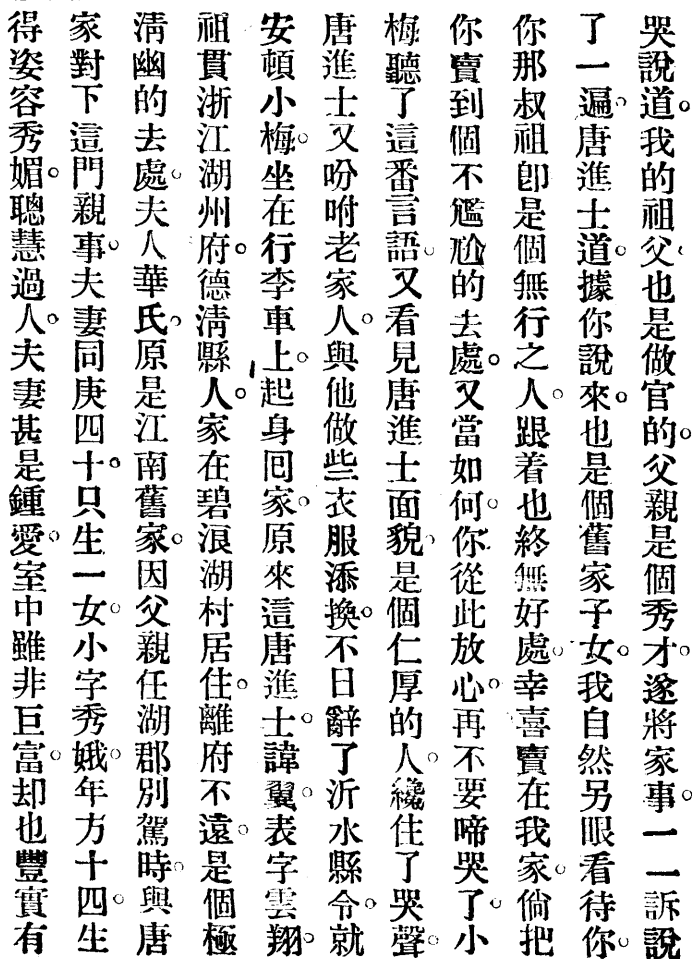 哭說道。我的祖父也是做官的。父親是個秀才。遂將家事。一一訴說
了一遍。唐進士道。據你說來。也是個舊家子女。我自然另眼看待你。
你那叔祖卽是個無行之人。跟着也終無好處。幸喜賣在我家。倘把
你賣到個不尷尬的去處。又當如何。你從此放心。再不要啼哭了。小
梅聽了這番言語。又看見唐進士面貌。是個仁厚的人。纔住了哭聲。
唐進士又吩咐老家人。與他做些衣服添換。不日辭了沂水縣令。就
安頓小梅。坐在行李車上。起身囘家。原來這唐進士。諱翼。表字雲翔。
祖貫浙江湖州府。德淸縣人。家在碧浪湖村居住。離府不遠。是個極
淸幽的去處。夫人華氏。原是江南舊家。因父親任湖郡別駕時。與唐
家對下這門親事。夫妻同庚四十。只生一女。小字秀娥。年方十四。生
得姿容秀媚。聰慧過人。夫妻甚是鍾愛。室中雖非巨富。却也豐實有